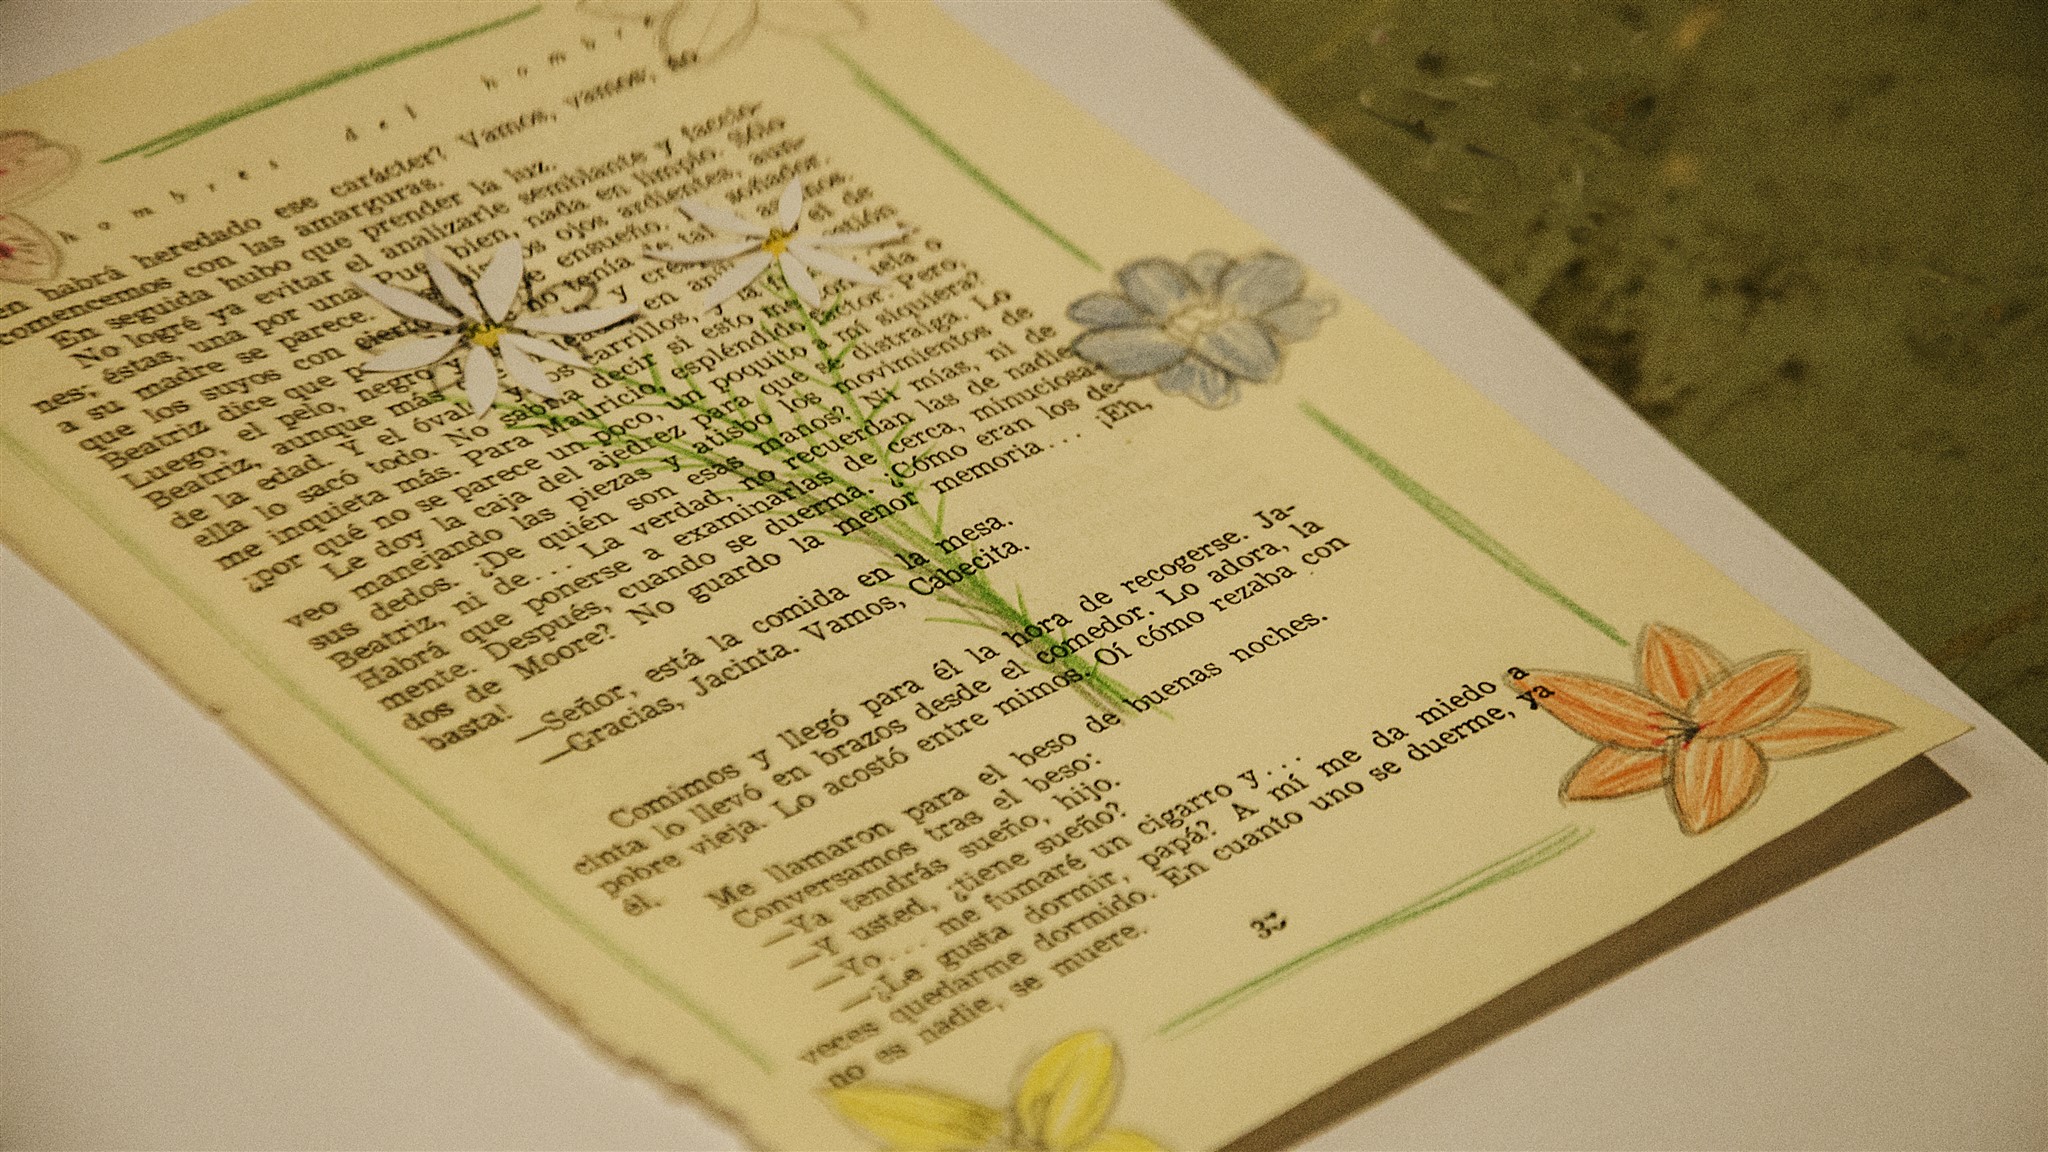 hombres del hombre
en habrá heredado ese carácter? Vamos, vamos, no
comencemos con las amarguras.
En seguida hubo que prender la luz.
No logré ya evitar el analizarle semblante y faccio-
nes; éstas, una por una. Pues bien, nada en limpio. Sólo
a su madre se parece. ojos ardientes, aun-
que los suyos con cierto de ensueño. soñador.
Beatriz dice que no tenía de tal
Luego, el pelo, negro y y el de
Beatriz, aunque más en
de la edad. Y el óvalo y los carrillos, y la
ella lo sacó todo. No sabría decir si esto me o
me inquieta más. Para Mauricio, espléndido factor. Pero,
¿por qué no se parece un poco, un poquito a mí siquiera?
Le doy la caja del ajedrez para que se distraiga. Lo
veo manejando las piezas y atisbo los movimientos de
sus dedos. ¿De quién son esas manos? Ni mías, ni de
Beatriz, ni de... La verdad, no recuerdan las de nadie.
Habrá que ponerse a examinarlas de cerca, minuciosa-
mente. Después, cuando se duerma. ¿Cómo eran los de-
dos de Moore? No guardo la menor memoria... ¡Eh,
basta!
—Señor, está la comida en la mesa.
—Gracias, Jacinta. Vamos, Cabecita.
Comimos y llegó para él la hora de recogerse. Ja-
cinta lo llevó en brazos desde el comedor. Lo adora, la
pobre vieja. Lo acostó entre mimos. Oí cómo rezaba con
él.
Me llamaron para el beso de buenas noches.
Conversamos tras el beso:
—Ya tendrás sueño, hijo.
—Y usted, ¿tiene sueño?
—Yo... me fumaré un cigarro y...
—¿Le gusta dormir, papá? A mí me da miedo a
veces quedarme dormido. En cuanto uno se duerme, ya
no es nadie, se muere.